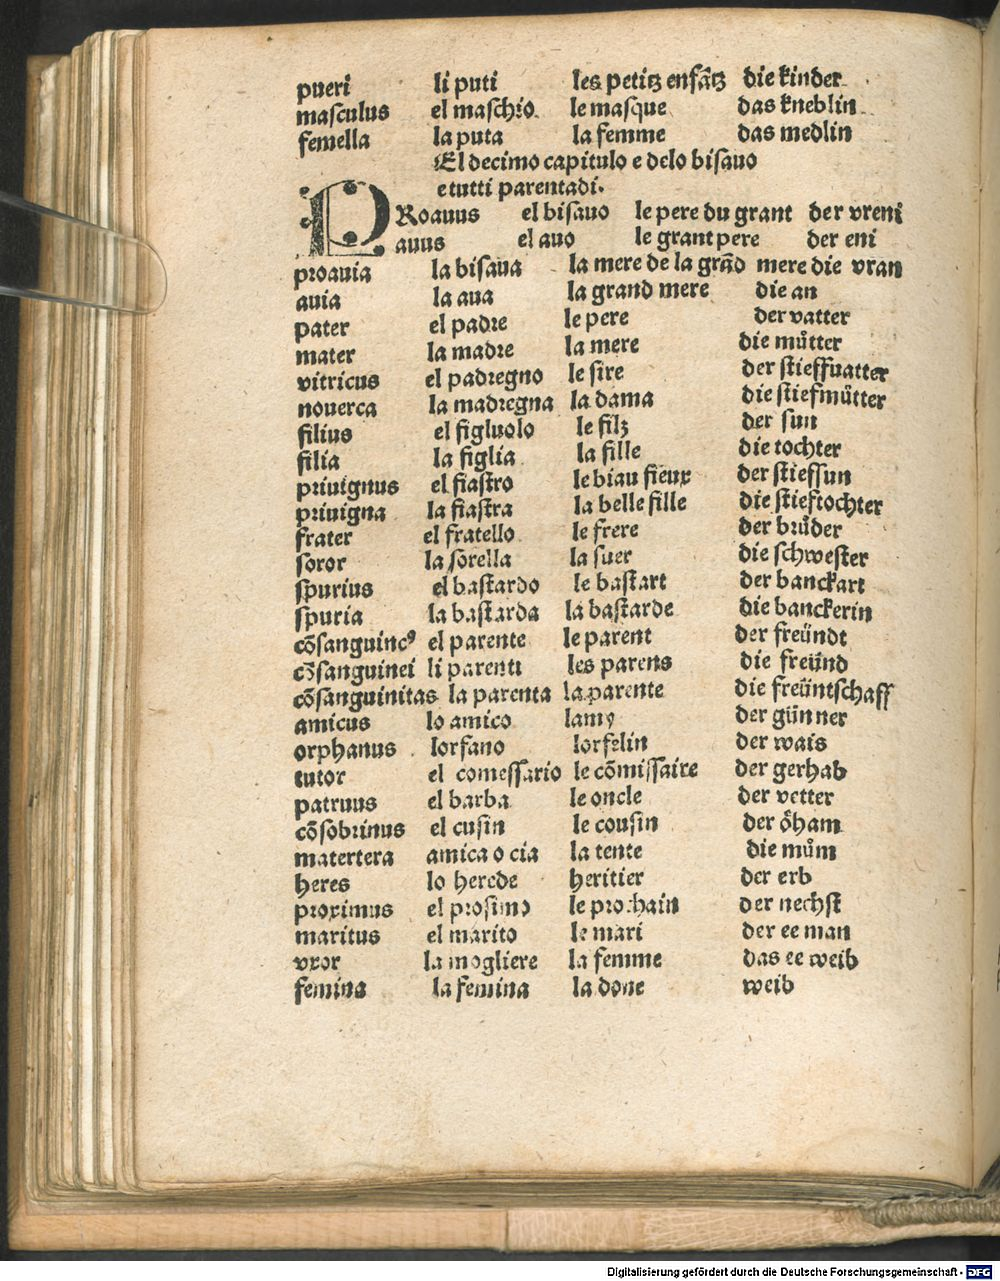 pueri li puti les petitz enfãtz die kinder
masculus el maschio le masque das kneblin
femella la puta la femme das medlin
El decimo capitulo e delo bisauo
e tutti parentadi.
PRoauus el bisauo le pere du grant der vreni
auus el auo le grant pere der eni
proauia la bisaua la mere de la grãd mere die vran
auia la aua la grand mere die an
pater el padre le pere der vatter
mater la madre la mere die můtter
vitricus el padregno le sire der stieffuatter
nouerca la madregna la dama die stiefmůtter
filius el figluolo le filz der sun
filia la figlia la fille die tochter
priuignus el fiastro le biau fieux der stiefsun
priuigna la fiastra la belle fille die stieftochter
frater el fratello le frere der brůder
soror la sorella la suer die schwester
spurius el bastardo le bastart der banckart
spuria la bastarda la bastarde die banckerin
cõsanguineꝰ el parente le parent der freündt
cõsanguinei li parenti les parens die freünd
cõsanguinitas la parenta la parente die freüntschaff
amicus lo amico lamy der günner
orphanus lorfano lorfelin der wais
tutor el comessario le cõmissaire der gerhab
patruus el barba le oncle der vetter
cõsobrinus el cusin le cousin der öham
matertera amica o cia la tente die mům
heres lo herede heritier der erb
proximus el prosimo le prochain der nechst
maritus el marito le mari der ee man
vxor la mogliere la femme das ee weib
femina la femina la done weib
Digitalisierung gefördert durch die Deutsche Forschungsgemeinschaft - DFG